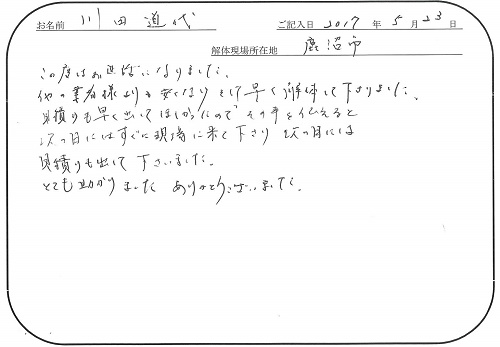 お名前 川田道代 ご記入日 2017 年 5 月 23 日
解体現場所在地 鹿沼市
この度はお世話になりました。
他の業者様よりも安くなり そして早く解体して下さりました、
見積りも早く出してほしかったので その事を伝えると
次の日にはすぐに現場に来て下さり 次の日には
見積りも出して下さいました。
とても助かりました ありがとうございました。